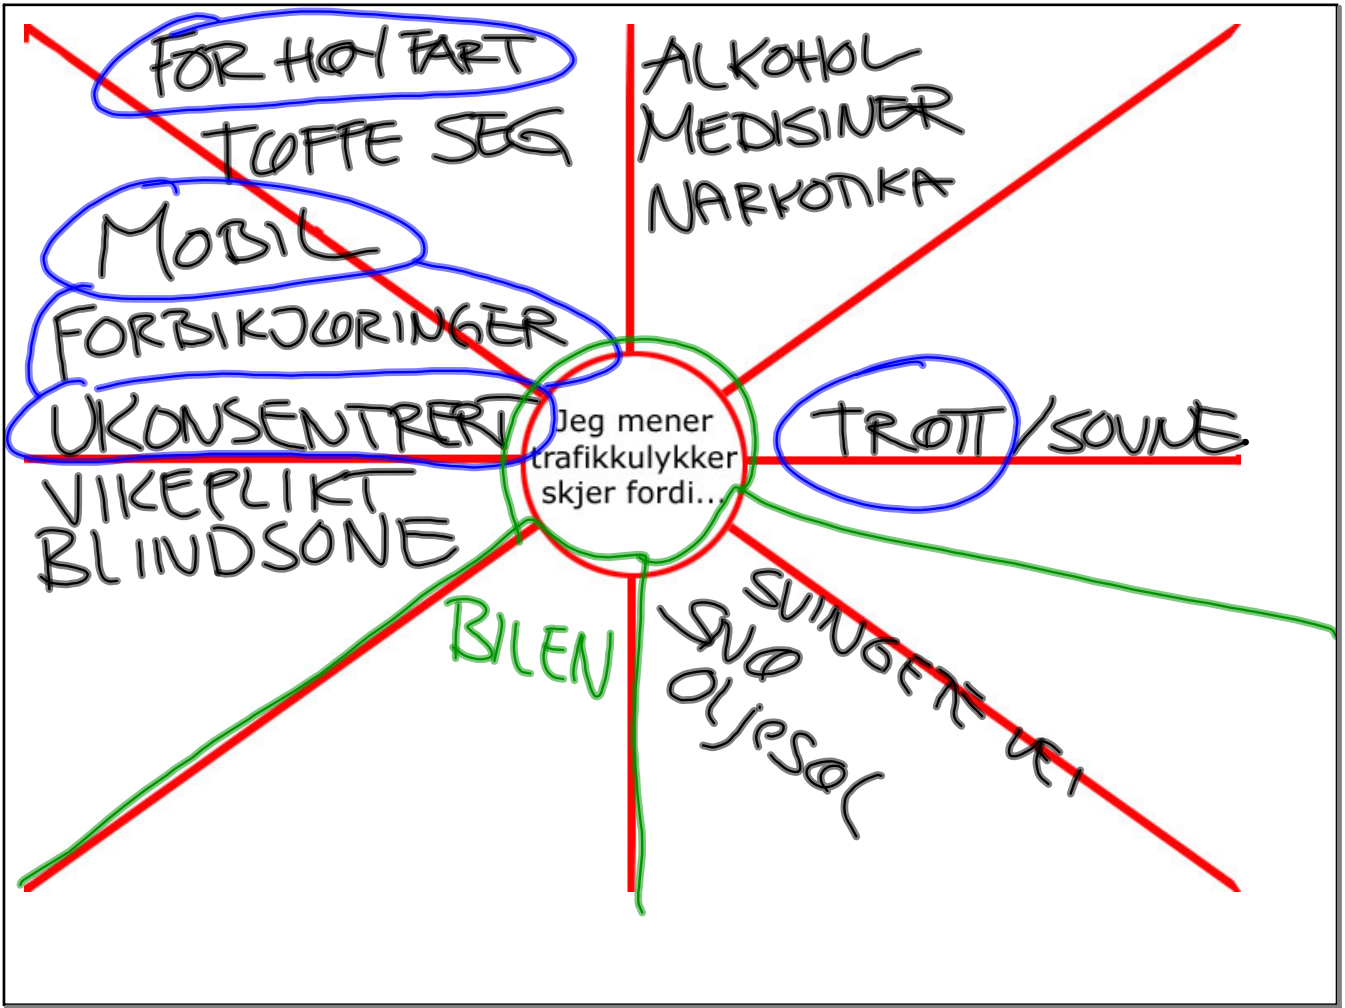 FOR HØY FART
TØFFE SEG
MOBIL
FORBIKJØRINGER
UKONSENTRERT
VIKEPLIKT
BLINDSONE
ALKOHOL
MEDISINER
NARKOTIKA
Jeg mener
trafikkulykker
skjer fordi...
TRØTT/SOVNE
BILEN
SVINGERE VEI
SNØ
OLJESØL